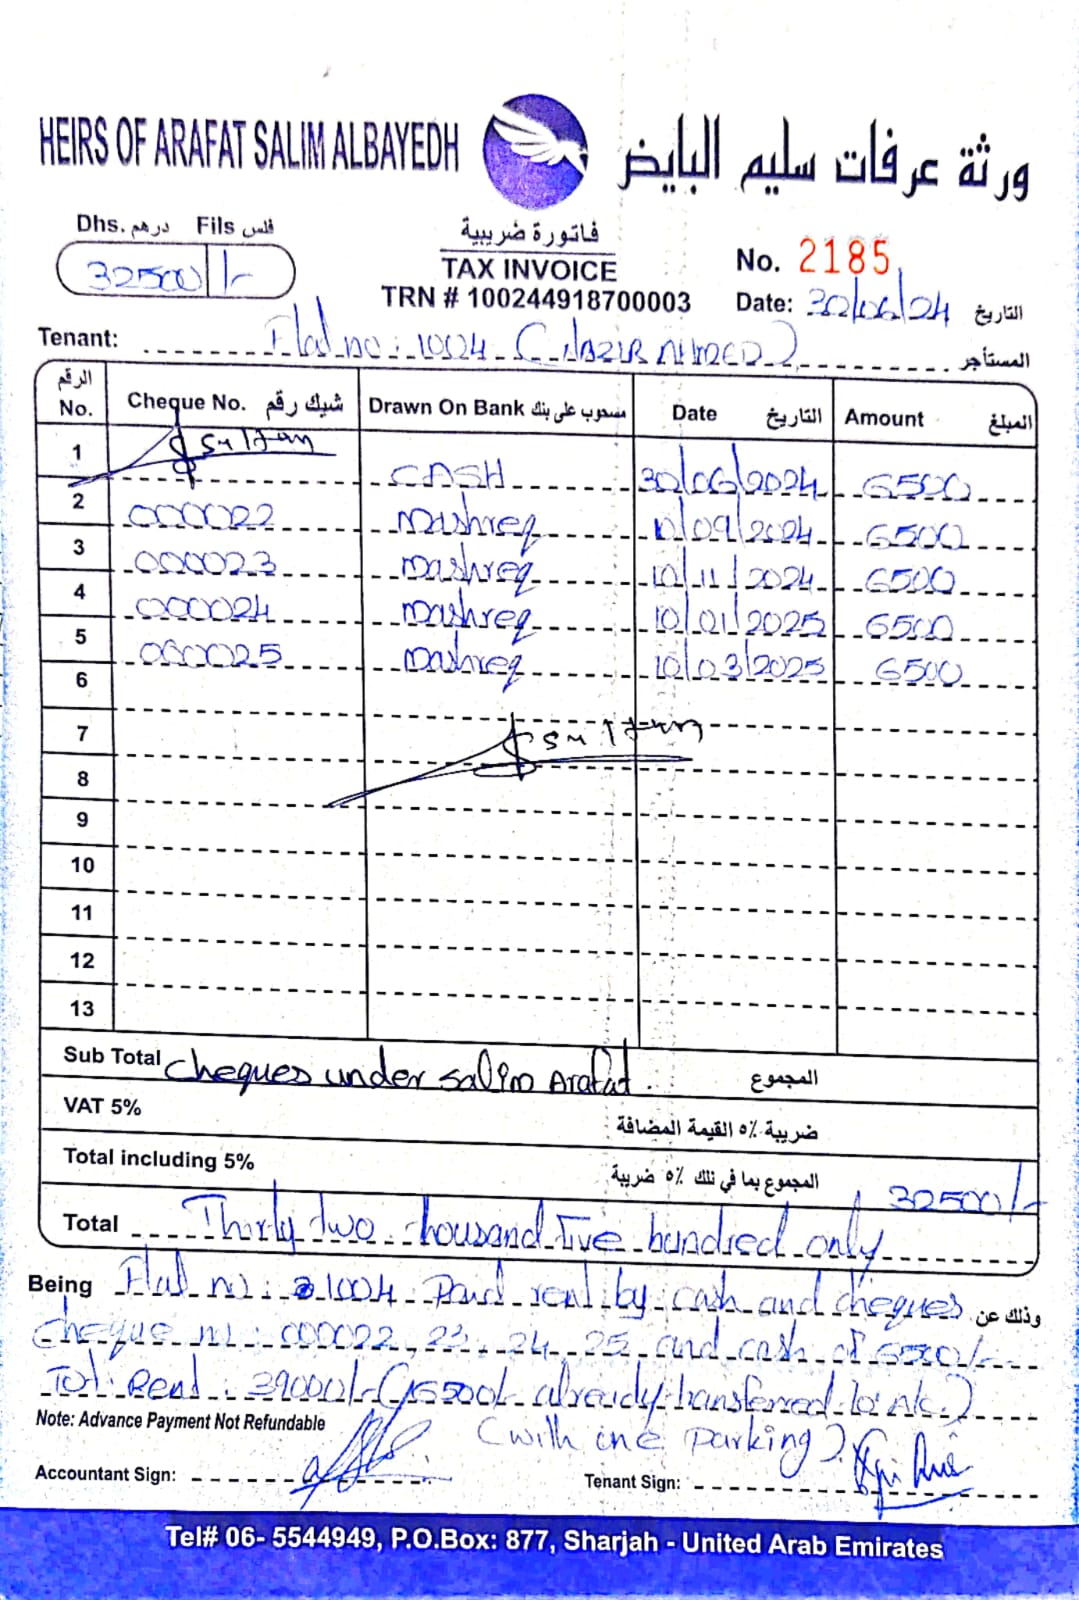 HEIRS OF ARAFAT SALIM ALBAYEDH ورثة عرفات سليم البايض
Dhs. درهم Fils فلس
32500 /-
فاتورة ضريبية
TAX INVOICE
TRN # 100244918700003
No. 2185
Date: 30/06/24 التاريخ
Tenant: Flat no: 1004 (NAZIR AHMED) المستأجر
الرقم No. Cheque No. شيك رقم Drawn On Bank مسحوب على بنك Date التاريخ Amount المبلغ
1 Sultan CASH 30/06/2024 6500
2 000022 Mashreq 10/09/2024 6500
3 000023 Mashreq 10/11/2024 6500
4 000024 Mashreq 10/01/2025 6500
5 000025 Mashreq 10/03/2025 6500
6
7 Sultan
8
9
10
11
12
13
Sub Total cheques under Salim Arafat المجموع
VAT 5% ضريبة ٥٪ القيمة المضافة
Total including 5% المجموع بما في ذلك ٥٪ ضريبة 32500/-
Total Thirty two thousand five hundred only
Being Flat no: 1004 Paid rent by cash and cheques وذلك عن
cheque no: 000022, 23, 24, 25 and cash of 6500/-
Tot: Rent: 39000/- (6500/- already transferred to A/c.)
Note: Advance Payment Not Refundable
(with one parking)
Accountant Sign:
Tenant Sign:
Tel# 06- 5544949, P.O.Box: 877, Sharjah - United Arab Emirates